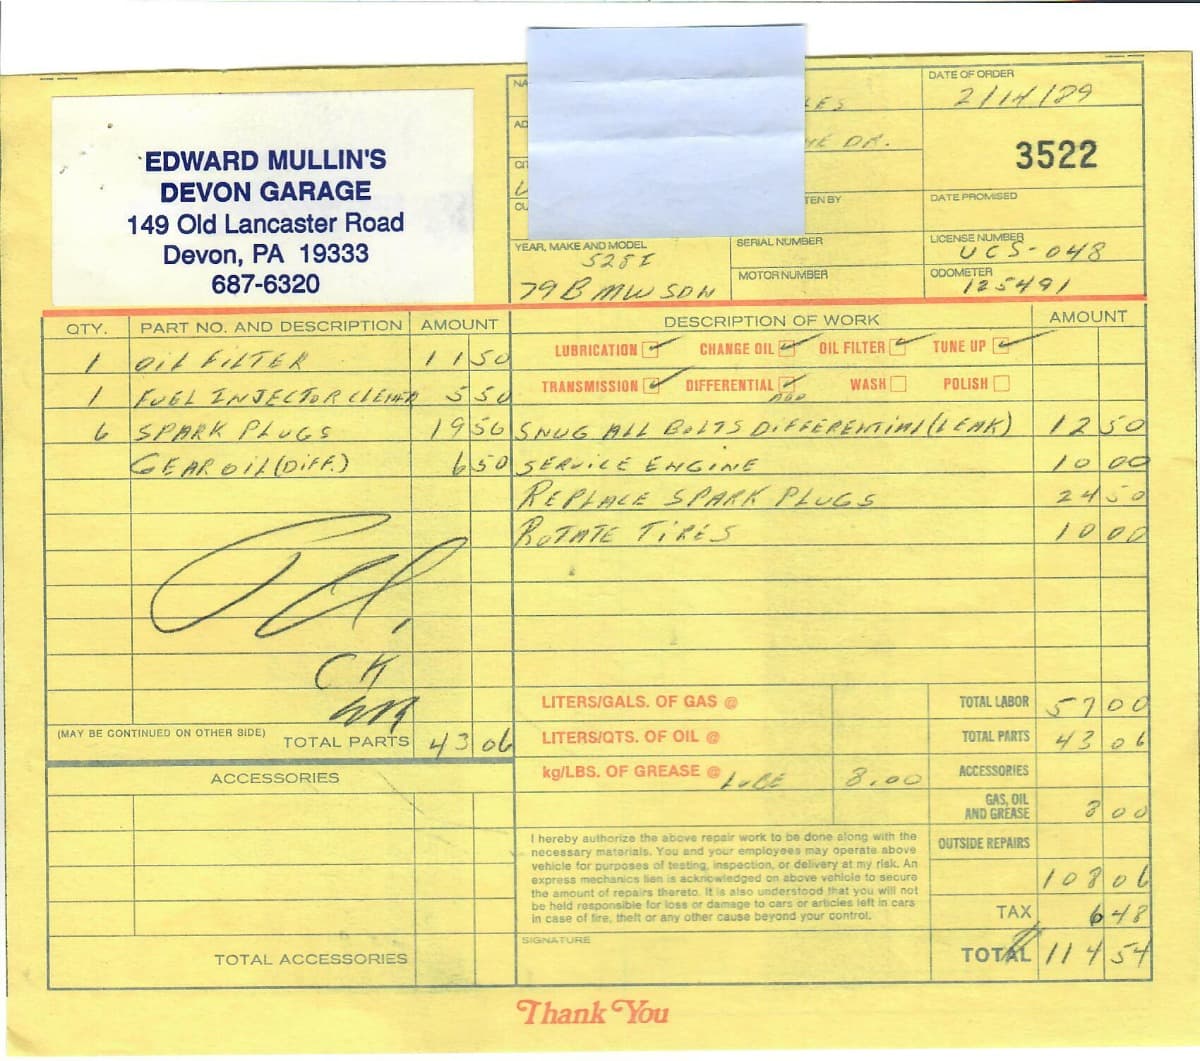 EDWARD MULLIN'S
DEVON GARAGE
149 Old Lancaster Road
Devon, PA 19333
687-6320
DATE OF ORDER
2/14/89
3522
DR.
TEN BY
DATE PROMISED
YEAR, MAKE AND MODEL
528I
79 BMW SDN
SERIAL NUMBER
MOTOR NUMBER
LICENSE NUMBER
UCS-048
ODOMETER
125491
QTY. PART NO. AND DESCRIPTION AMOUNT
1 OIL FILTER 11 50
1 FUEL INJECTOR CLEANER 5 50
6 SPARK PLUGS 19 56
GEAR OIL (DIFF.) 6 50
CK
(MAY BE CONTINUED ON OTHER SIDE) TOTAL PARTS 43 06
ACCESSORIES
TOTAL ACCESSORIES
DESCRIPTION OF WORK AMOUNT
LUBRICATION CHANGE OIL OIL FILTER TUNE UP
TRANSMISSION DIFFERENTIAL WASH POLISH
ADD
SNUG ALL BOLTS DIFFERENTIAL (LEAK) 12 50
SERVICE ENGINE 10 00
REPLACE SPARK PLUGS 24 50
ROTATE TIRES 10 00
LITERS/GALS. OF GAS @
LITERS/QTS. OF OIL @
kg/LBS. OF GREASE @ LUBE 8.00
TOTAL LABOR 57 00
TOTAL PARTS 43 06
ACCESSORIES
GAS, OIL
AND GREASE 8 00
OUTSIDE REPAIRS
108 06
TAX 6 48
TOTAL 114 54
I hereby authorize the above repair work to be done along with the
necessary materials. You and your employees may operate above
vehicle for purposes of testing, inspection, or delivery at my risk. An
express mechanics lien is acknowledged on above vehicle to secure
the amount of repairs thereto. It is also understood that you will not
be held responsible for loss or damage to cars or articles left in cars
in case of fire, theft or any other cause beyond your control.
SIGNATURE
Thank You